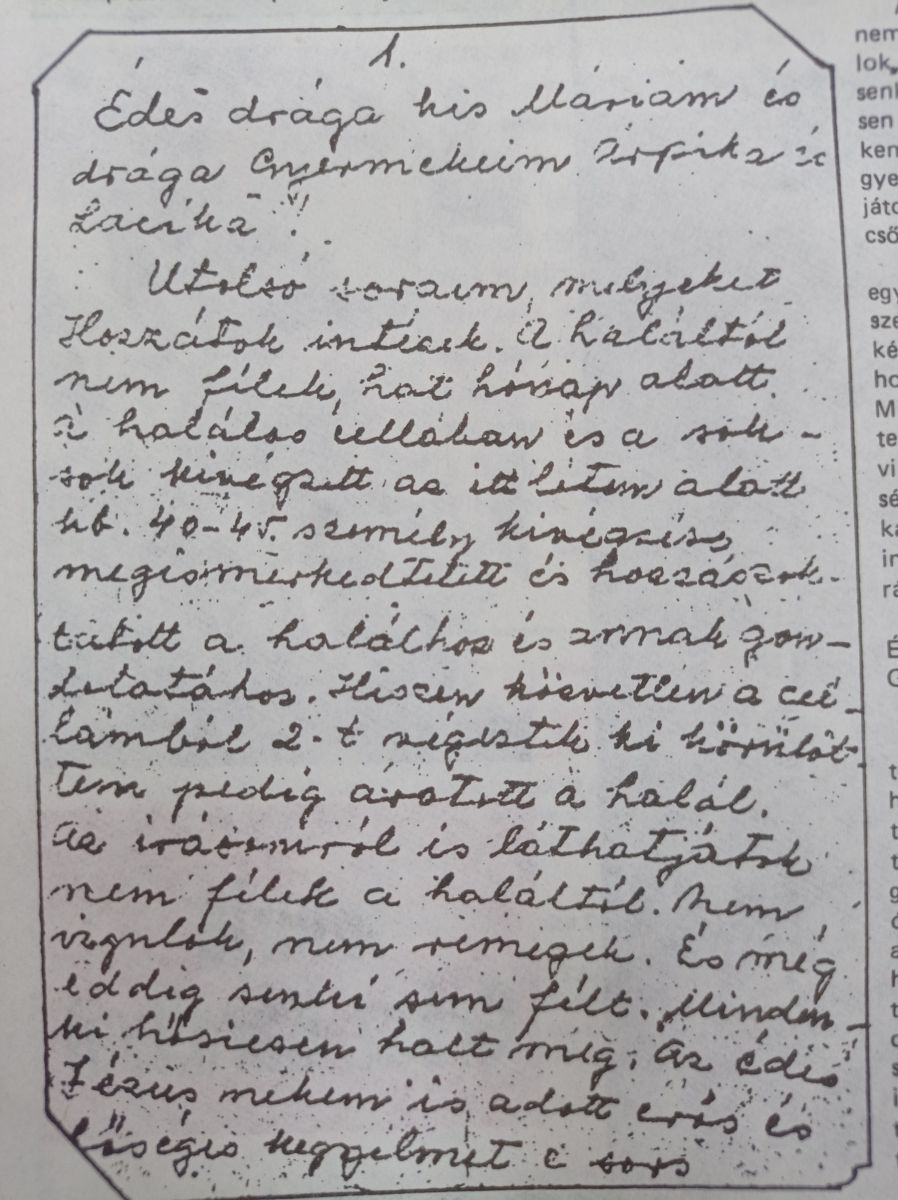 1.
Édes drága kis Máriám és
drága Gyermekeim Árpika és
Lacika!
Utolsó soraim, melyeket
Hozzátok intézek. A haláltól
nem félek, hat hónap alatt
a halálso cellában és a sok-
sok kivégzett az ittlétem alatt
kb. 40-45. személy kivégzése
megismerkedtetett és hozzászok-
tatott a halálhoz és annak gon-
dolatához. Hiszen közvetlen a cel-
lámból 2-t végeztek ki körülöt-
tem pedig aratott a halál.
Az írásomról is láthatjátok
nem félek a haláltól. Nem
izgulok, nem remegek. És még
eddig senki sem félt. Minden-
ki hősiesen halt meg. Az édes
Jézus nekem is adott erős és
bőséges kegyelmet e sors
nem
lok,
sen
ken
gye
játo
cső
egy
sze
ké
ho
M
te
vi
sé
ka
in
rá
É
G